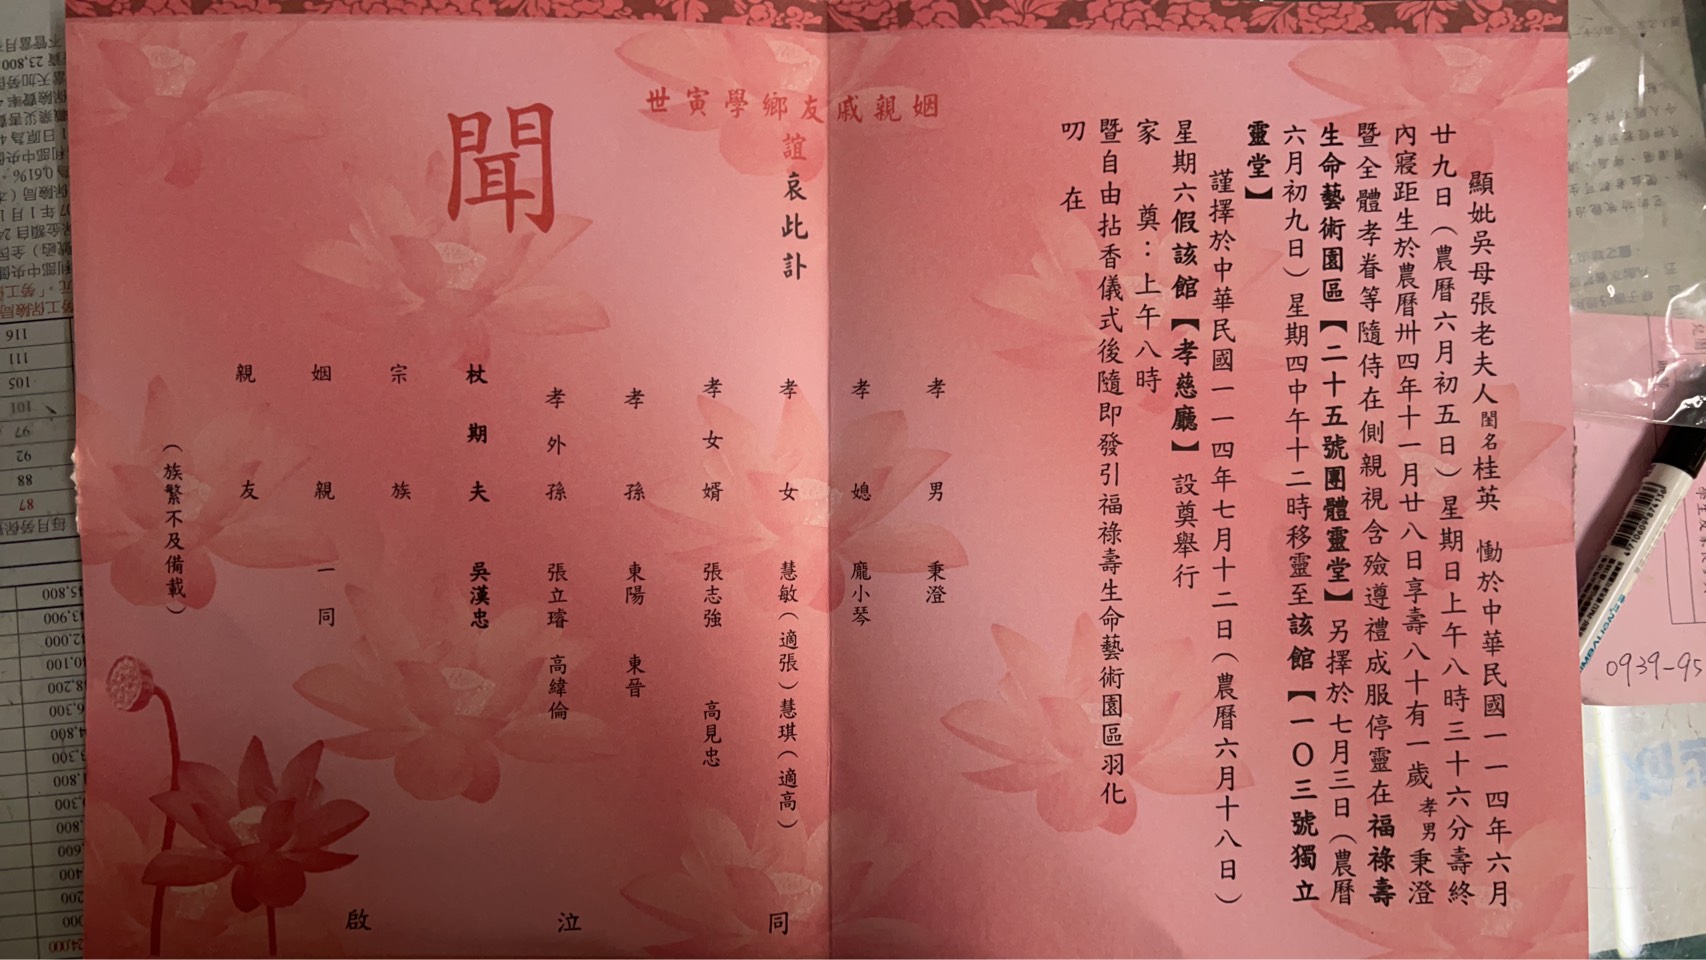 顯妣吳母張老夫人閨名桂英 慟於中華民國一一四年六月
廿九日(農曆六月初五日)星期日上午八時三十六分壽終
內寢距生於農曆卅四年十一月廿八日享壽八十有一歲孝男秉澄
暨全體孝眷等隨侍在側親視含殮遵禮成服停靈在福祿壽
生命藝術園區【二十五號團體靈堂】另擇於七月三日(農曆
六月初九日)星期四中午十二時移靈至該館【一〇三號獨立
靈堂】
謹擇於中華民國一一四年七月十二日(農曆六月十八日)
星期六假該館【孝慈廳】設奠舉行
家 奠:上午八時
暨自由拈香儀式後隨即發引福祿壽生命藝術園區羽化
叨 在
姻親戚友鄉學寅世
誼哀此訃
聞
孝男 秉澄
孝媳 龐小琴
孝女 慧敏(適張)慧琪(適高)
孝女婿 張志強 高見忠
孝孫 東陽 東晉
孝外孫 張立璿 高緯倫
杖期夫 吳漢忠
宗族
姻親 一同
親友
(族繁不及備載)
同 泣 啟
116
111
105
101
97
92
88
87
45,800
43,900
24,000
0939-95